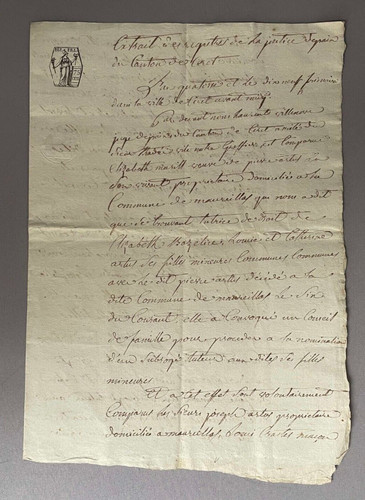 REP. FRA.
Extrait des registres de la justice de paix
du Canton de Ceret
L'an quatorze et le dix neuf frimaire
dans la ville de Ceret avant midy
Par devant nous laurents villanove
juge de paix du Canton de Ceret assisté de
notre Greffier est Comparue
Elizabeth veuve de pierre artus
son vivant propriétaire domiciliée à la
Commune de maureillas qui nous a dit
que se trouvant tutrice de droit de
Elizabeth Louise et Catherine
artus ses filles mineures Communes
avec le dit pierre artus décédé à la
dite Commune de maureillas le six
du Courant, elle a Convoqué un Conseil
de famille pour procéder à la nomination
d'un subrogé tuteur aux dites ses filles
mineures
Et à cet effet sont volontairement
Comparus les sieurs joseph artus propriétaire
domicilié à maureillas, Louis maçon